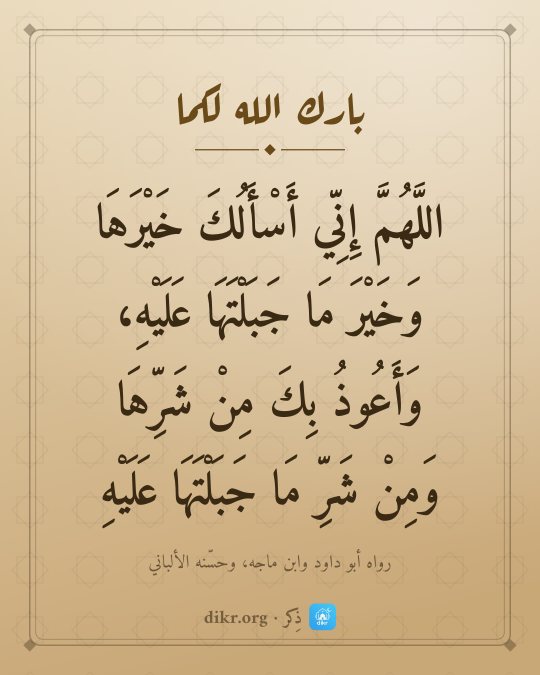 بارك الله لكما
اللَّهُمَّ إِنِّي أَسْأَلُكَ خَيْرَهَا
وَخَيْرَ مَا جَبَلْتَهَا عَلَيْهِ،
وَأَعُوذُ بِكَ مِنْ شَرِّهَا
وَمِنْ شَرِّ مَا جَبَلْتَهَا عَلَيْهِ
رواه أبو داود وابن ماجه، وحسّنه الألباني
ذِكر · dikr.org
dikr